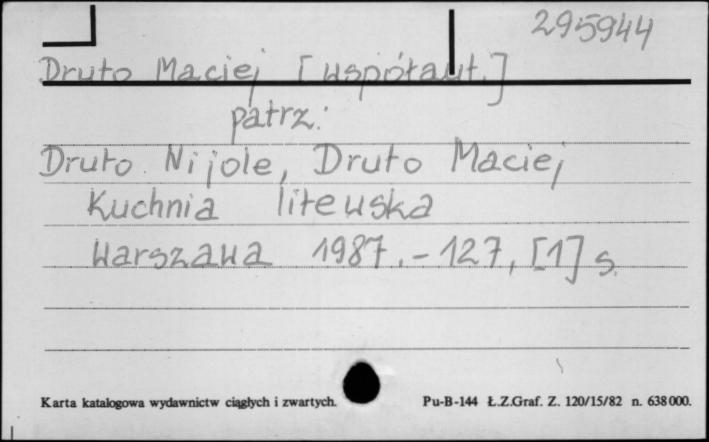 295944
Druto Maciej [współaut.]
patrz:
Druto Nijole, Druto Maciej
Kuchnia litewska
Warszawa 1987.-127, [1] s.
Karta katalogowa wydawnictw ciągłych i zwartych. Pu-B-144 Ł.Z.Graf. Z. 120/15/82 n. 638000.